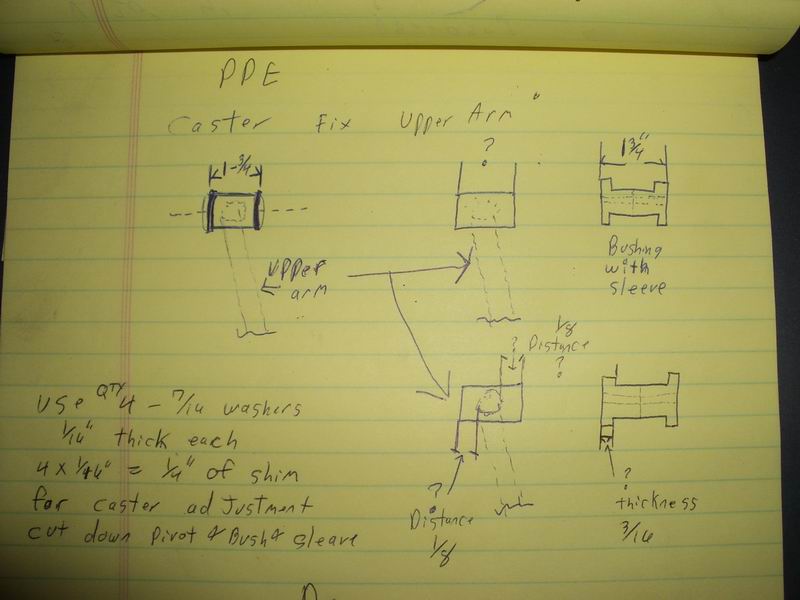 PPE
Caster Fix Upper Arm
1-3/4
?
1 3/4"
UPPer
arm
Bushing
with
sleeve
1/8
? Distance
?
USE QTY 4 - 7/16 washers
1/16" thick each
4 x 1/16" = 1/4" of shim
for caster adJustment
cut down Pivot & Bush & sleave
?
Distance
1/8
?
thickness
3/16